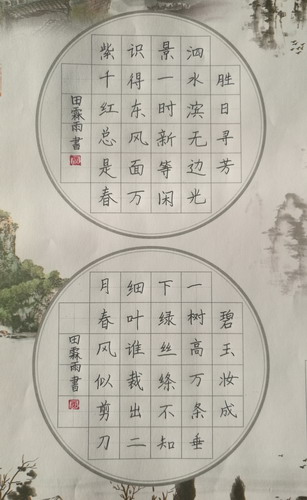 胜日寻芳
泗水滨无边光
景一时新等闲
识得东风面万
紫千红总是春
田霖雨書
碧玉妆成
一树高万条垂
下绿丝绦不知
细叶谁裁出二
月春风似剪刀
田霖雨書